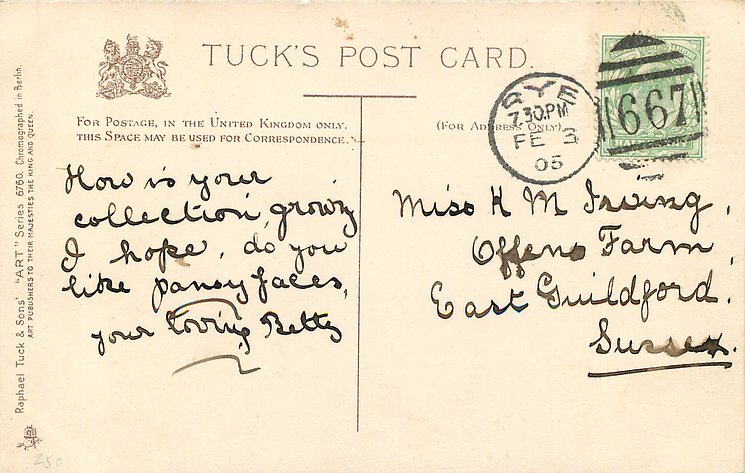 TUCK'S POST CARD.
FOR POSTAGE, IN THE UNITED KINGDOM ONLY,
THIS SPACE MAY BE USED FOR CORRESPONDENCE.
(FOR ADDRESS ONLY)
RYE
7.30.PM
FE 3
05
667
How is your
collection, growing
I hope, do you
like pansy faces,
your loving Betty
Miss H M Irving,
Offens Farm,
East Guildford.
Sussex.
Raphael Tuck & Sons' "ART" Series 6760. Chromographed in Berlin.
ART PUBLISHERS TO THEIR MAJESTIES THE KING AND QUEEN.
250